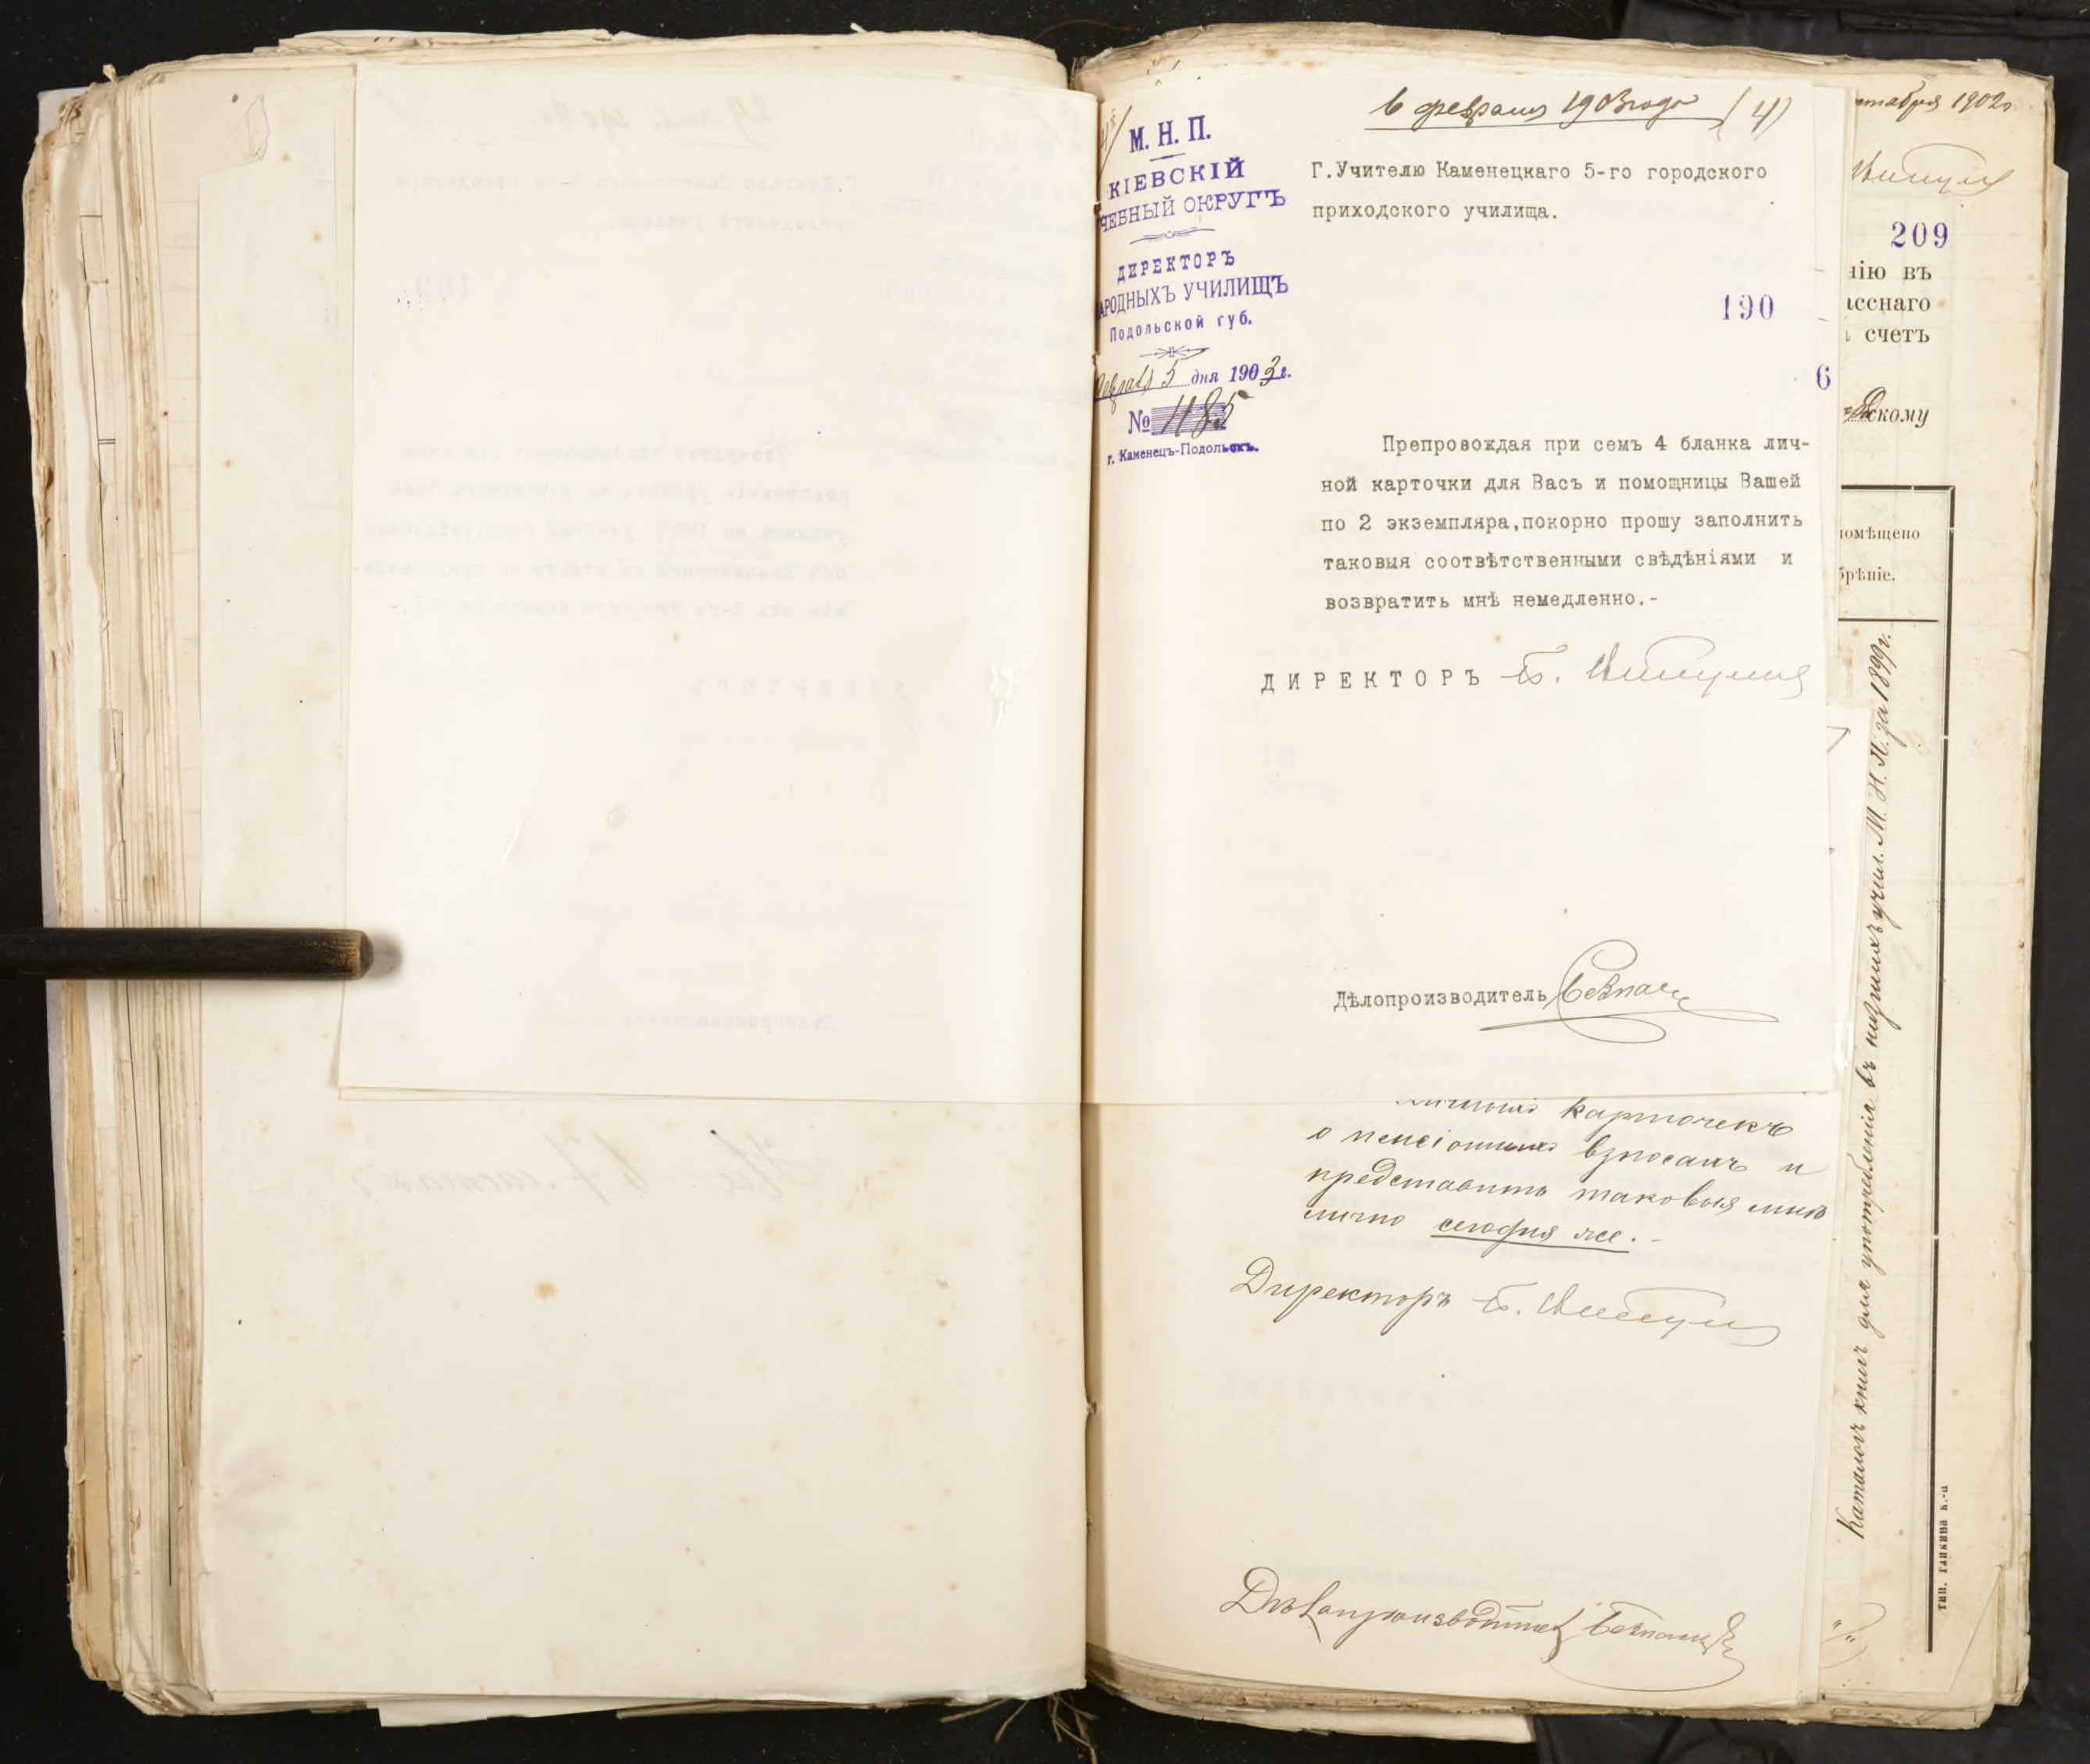 6 февраля 1903 года (4)
М. Н. П.
КІЕВСКІЙ
ЧЕБНЫЙ ОКРУГЪ
ДИРЕКТОРЪ
АРОДНЫХЪ УЧИЛИЩЪ
Подольской губ.
5 дня 1903 г.
№ 1185
г. Каменецъ-Подольскъ.
Г.Учителю Каменецкаго 5-го городского
приходского училища.
190
6
Препровождая при семъ 4 бланка лич-
ной карточки для Васъ и помощницы Вашей
по 2 экземпляра,покорно прошу заполнить
таковыя соотвѣтственными свѣдѣніями и
возвратить мнѣ немедленно.-
ДИРЕКТОРЪ
Дѣлопроизводитель
карточекъ
о пенсіонныхъ взносахъ и
представить таковыя мнѣ
лично сегодня же.-
Директоръ
Дѣлопроизводитель
тября 1902 г.
209
нію въ
асснаго
счетъ
скому
омѣщено
брѣніе.
Каталогъ книгъ для употребленія въ низшихъ учил. М. Н. П. за 1899 г.
тип. гликина к.-п